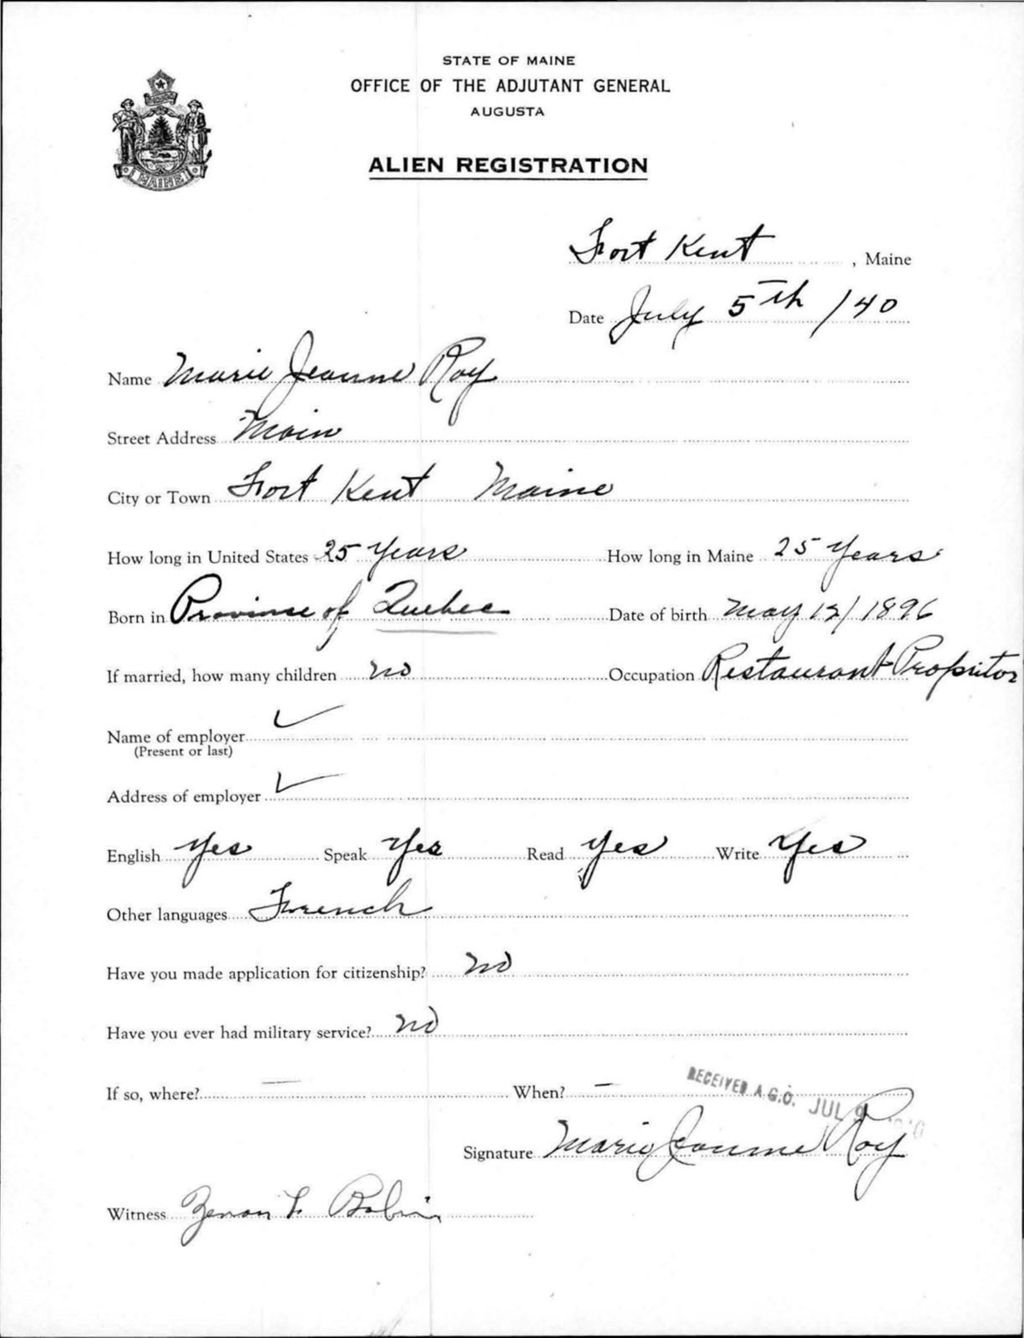 STATE OF MAINE
OFFICE OF THE ADJUTANT GENERAL
AUGUSTA
ALIEN REGISTRATION
MAINE
Fort Kent, Maine
Date July 5th /40
Name Marie Jeanne Roy
Street Address Main
City or Town Fort Kent Maine
How long in United States 25 Years How long in Maine 25 Years
Born in Province of Quebec Date of birth May 12/1896
If married, how many children no Occupation Restaurant Propritor
Name of employer ✓
(Present or last)
Address of employer ✓
English Yes Speak Yes Read Yes Write Yes
Other languages French
Have you made application for citizenship? no
Have you ever had military service? no
If so, where? — When? —
RECEIVED A.G.O. JUL 9
Signature Marie Jeanne Roy
Witness Zenon